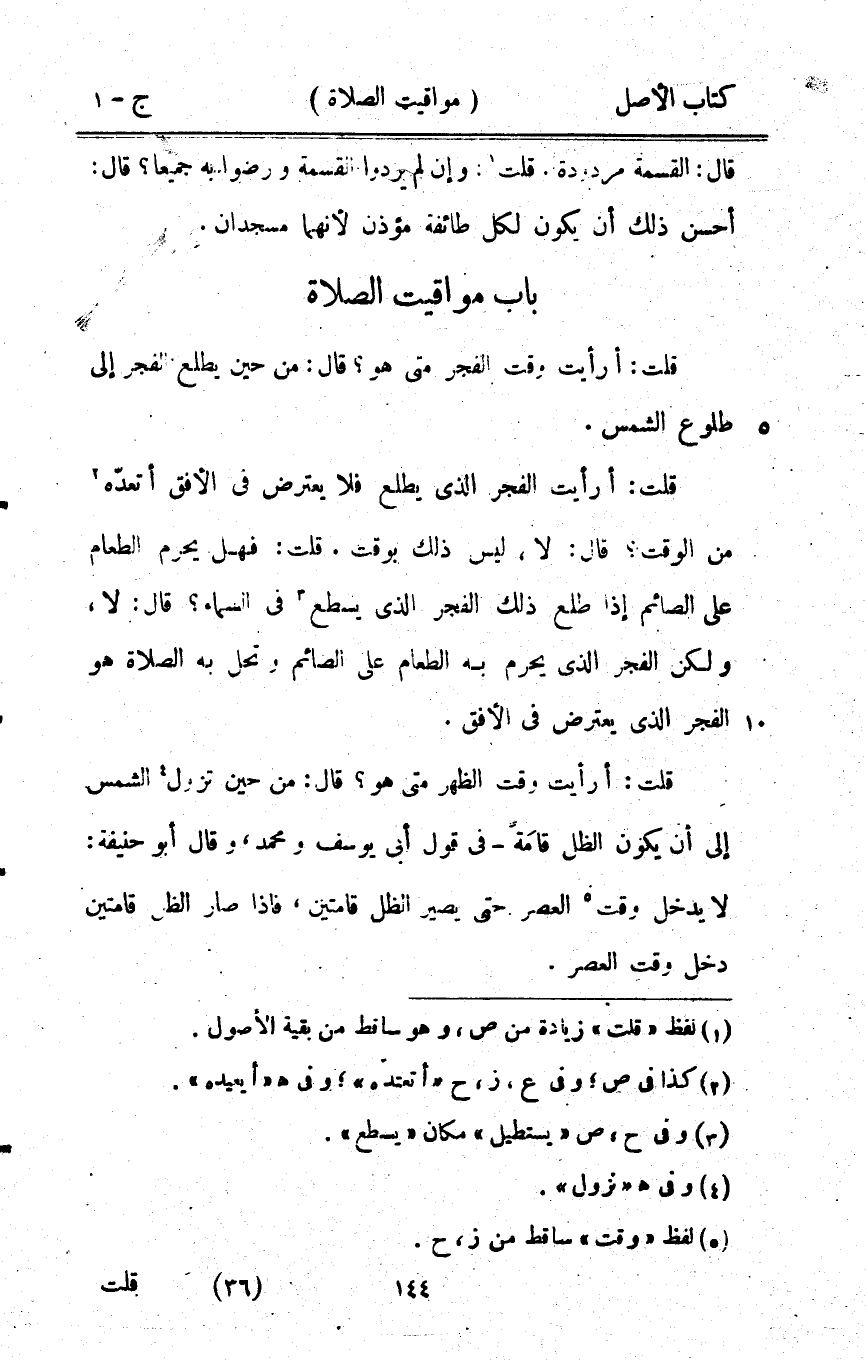 كتاب الأصل ( مواقيت الصلاة ) ج - ١
قال : القسمة مردودة . قلت١ : و إن لم يردوا القسمة و رضوا به جميعا ؟ قال :
أحسن ذلك أن يكون لكل طائفة مؤذن لأنهما مسجدان .
باب مواقيت الصلاة
قلت : أ رأيت وقت الفجر متى هو ؟ قال : من حين يطلع الفجر إلى
٥ طلوع الشمس .
قلت : أ رأيت الفجر الذى يطلع فلا يعترض فى الأفق أ تعدّه٢
من الوقت ؟ قال : لا ، ليس ذلك بوقت . قلت : فهل يحرم الطعام
على الصائم إذا طلع ذلك الفجر الذى يسطع٣ فى السماء ؟ قال : لا ،
و لكن الفجر الذى يحرم به الطعام على الصائم و تحل به الصلاة هو
١٠ الفجر الذى يعترض فى الأفق .
قلت : أ رأيت وقت الظهر متى هو ؟ قال : من حين تزول٤ الشمس
إلى أن يكون الظل قامَةً - فى قول أبى يوسف و محمد ، و قال أبو حنيفة :
لا يدخل وقت٥ العصر حتى يصير الظل قامتين ، فاذا صار الظل قامتين
دخل وقت العصر .
(١) لفظ « قلت » زيادة من ص ، و هو ساقط من بقية الأصول .
(٢) كذا فى ص ؛ و فى ع ، ز ، ح « أ تعتدّه » ؛ و فى ه « أ يعيده » .
(٣) و فى ح ، ص « يستطيل » مكان « يسطع » .
(٤) و فى ه « نزول » .
(٥) لفظ « وقت » ساقط من ز ، ح .
١٤٤ (٣٦) قلت